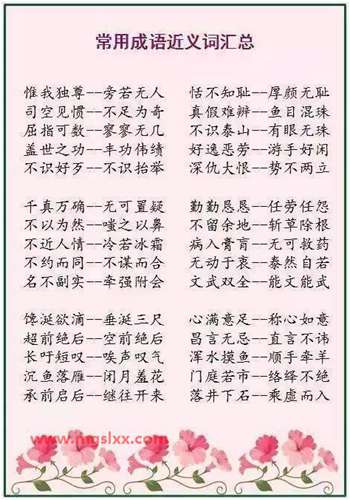 常用成语近义词汇总
惟我独尊--旁若无人
司空见惯--不足为奇
屈指可数--寥寥无几
盖世之功--丰功伟绩
不识好歹--不识抬举
恬不知耻--厚颜无耻
真假难辨--鱼目混珠
不识泰山--有眼无珠
好逸恶劳--游手好闲
深仇大恨--势不两立
千真万确--无可置疑
不以为然--嗤之以鼻
不近人情--冷若冰霜
不约而同--不谋而合
名不副实--牵强附会
勤勤恳恳--任劳任怨
不留余地--斩草除根
病入膏肓--无可救药
无动于衷--泰然自若
文武双全--能文能武
馋涎欲滴--垂涎三尺
超前绝后--空前绝后
长吁短叹--唉声叹气
沉鱼落雁--闭月羞花
承前启后--继往开来
心满意足--称心如意
昌言无忌--直言不讳
浑水摸鱼--顺手牵羊
门庭若市--络绎不绝
落井下石--乘虚而入
www.mgslxx.com